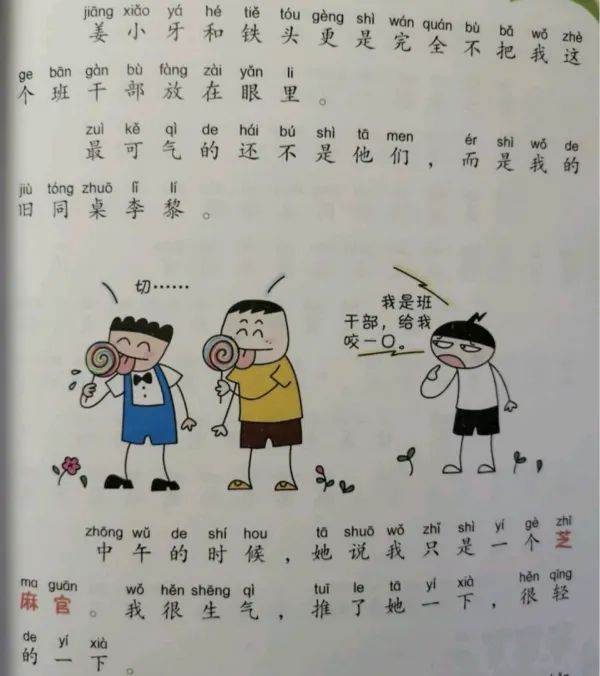 jiāng xiǎo yá hé tiě tóu gèng shì wán quán bù bǎ wǒ zhè
姜小牙和铁头更是完全不把我这
ge bān gàn bù fàng zài yǎn li
个班干部放在眼里。
zuì kě qì de hái bú shì tā men ér shì wǒ de
最可气的还不是他们，而是我的
jiù tóng zhuō lǐ lí
旧同桌李黎。
切……
我是班
干部，给我
咬一口。
zhōng wǔ de shí hou tā shuō wǒ zhǐ shì yí gè zhī
中午的时候，她说我只是一个芝
ma guān wǒ hěn shēng qì tuī le tā yí xià hěn qīng
麻官。我很生气，推了她一下，很轻
de yí xià
的一下。